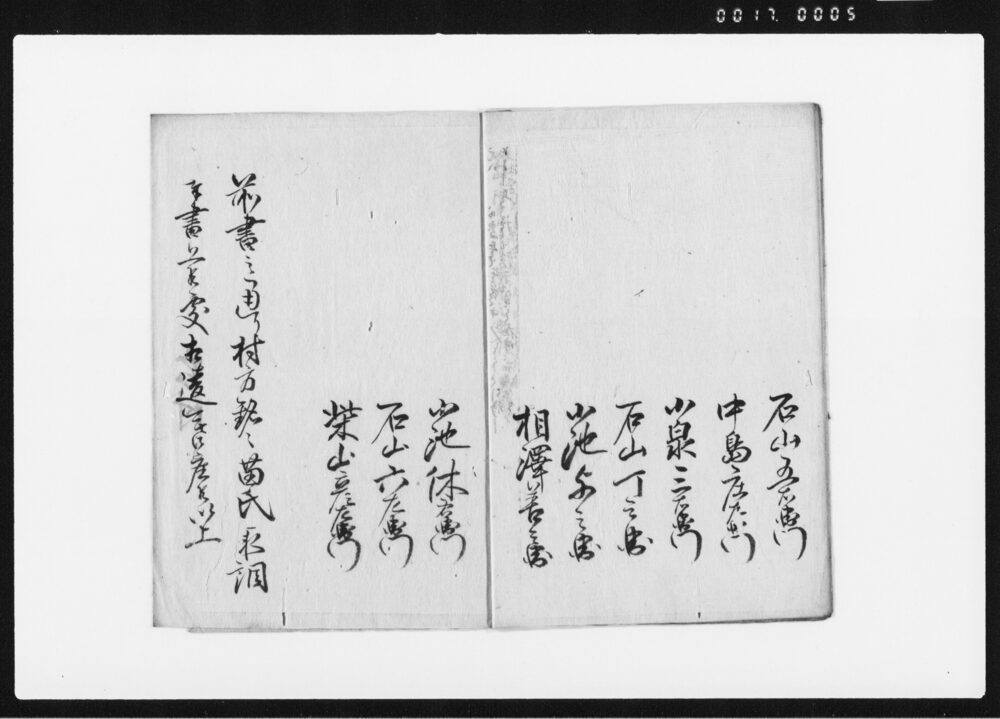 0017 0005
石山五右衛門
中島庄左衛門
小泉三右衛門
石山丁之助
小池与之助
相澤善之助
小池休右衛門
石山六左衛門
柴山彦左衛門
前書之通り村方銘々苗氏取調
奉書上候処相違無御座候以上